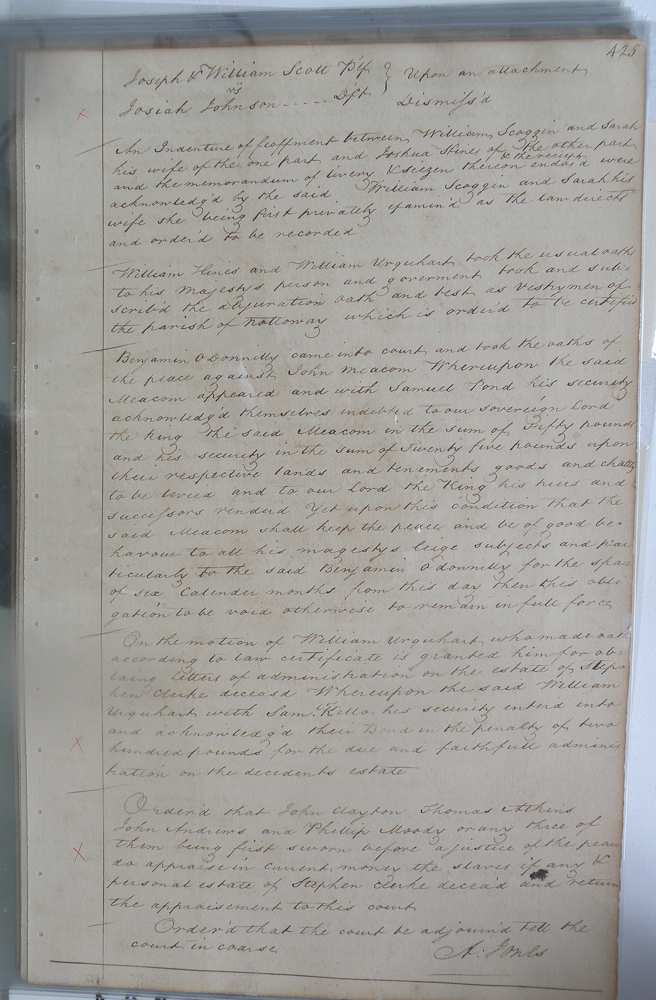 425
Joseph & William Scott Plfs } Upon an attachment
vs
Josiah Johnson ..... Dft } Dismiss'd
An Indenture of feoffment between William Scoggin and Sarah
his wife of the one part and Joshua of the other part
and the memorandum of livery & seizen thereon & the receipt endors'd were
acknowledg'd by the said William Scoggin and Sarah his
wife she being first privately examin'd as the law directs
and order'd to be recorded
William Hines and William Urquhart took the usual oaths
to his Majestys person and goverment took and sub=
scrib'd the abjuration oath and test as vestrymen of
the parish of Nottoway which is order'd to be certified
Benjamin O Donnilly came into court and took the oaths of
the peace against John Meacom Whereupon the said
Meacom appeared and with Samuel Pond his security
acknowledg'd themselves indebted to our sovereign Lord
the King the said Meacom in the sum of Fifty pounds
and his security in the sum of Twenty five pounds upon
their respective lands and tenements goods and chattles
to be levied and to our Lord the King his heirs and
successors rendred Yet upon this condition that the
said Meacom shall keep the peace and be of good be=
haviour to all his magestys leige subjects and par
ticularly to the said Benjamin O donnilly for the space
of sex Calender months from this day then this obli
gation to be void otherwise to remain in full force
On the motion of William Urquhart who made oath
according to law certificate is granted him for ob=
taing letters of administration on the estate of Step=
hen Clerke deceasd Whereupon the said William
Urquhart with Sam.l Kello his security enter'd into
and acknowledg'd their Bond in the penalty of two
hundred pounds for the due and faithfull adminis
tration on the decedents estate
Order'd that John Clayton Thomas Atkins
John Andrews and Phillip Moody or any three of
them being first sworn before a justice of the peace
do appraise in current money the slaves if any &
personal estate of Stephen Clerke deceasd and return
the appraisement to this court
Order'd that the court be adjourn'd till the
court in coarse A: Jones